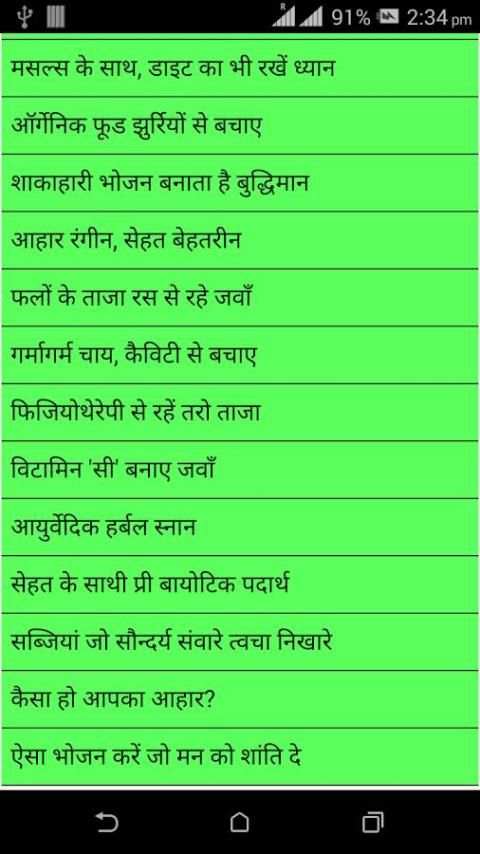 R
91%
2:34 pm
मसल्स के साथ, डाइट का भी रखें ध्यान
ऑर्गेनिक फूड झुर्रियों से बचाए
शाकाहारी भोजन बनाता है बुद्धिमान
आहार रंगीन, सेहत बेहतरीन
फलों के ताजा रस से रहे जवाँ
गर्मागर्म चाय, कैविटी से बचाए
फिजियोथेरेपी से रहें तरो ताजा
विटामिन 'सी' बनाए जवाँ
आयुर्वेदिक हर्बल स्नान
सेहत के साथी प्री बायोटिक पदार्थ
सब्जियां जो सौन्दर्य संवारे त्वचा निखारे
कैसा हो आपका आहार?
ऐसा भोजन करें जो मन को शांति दे